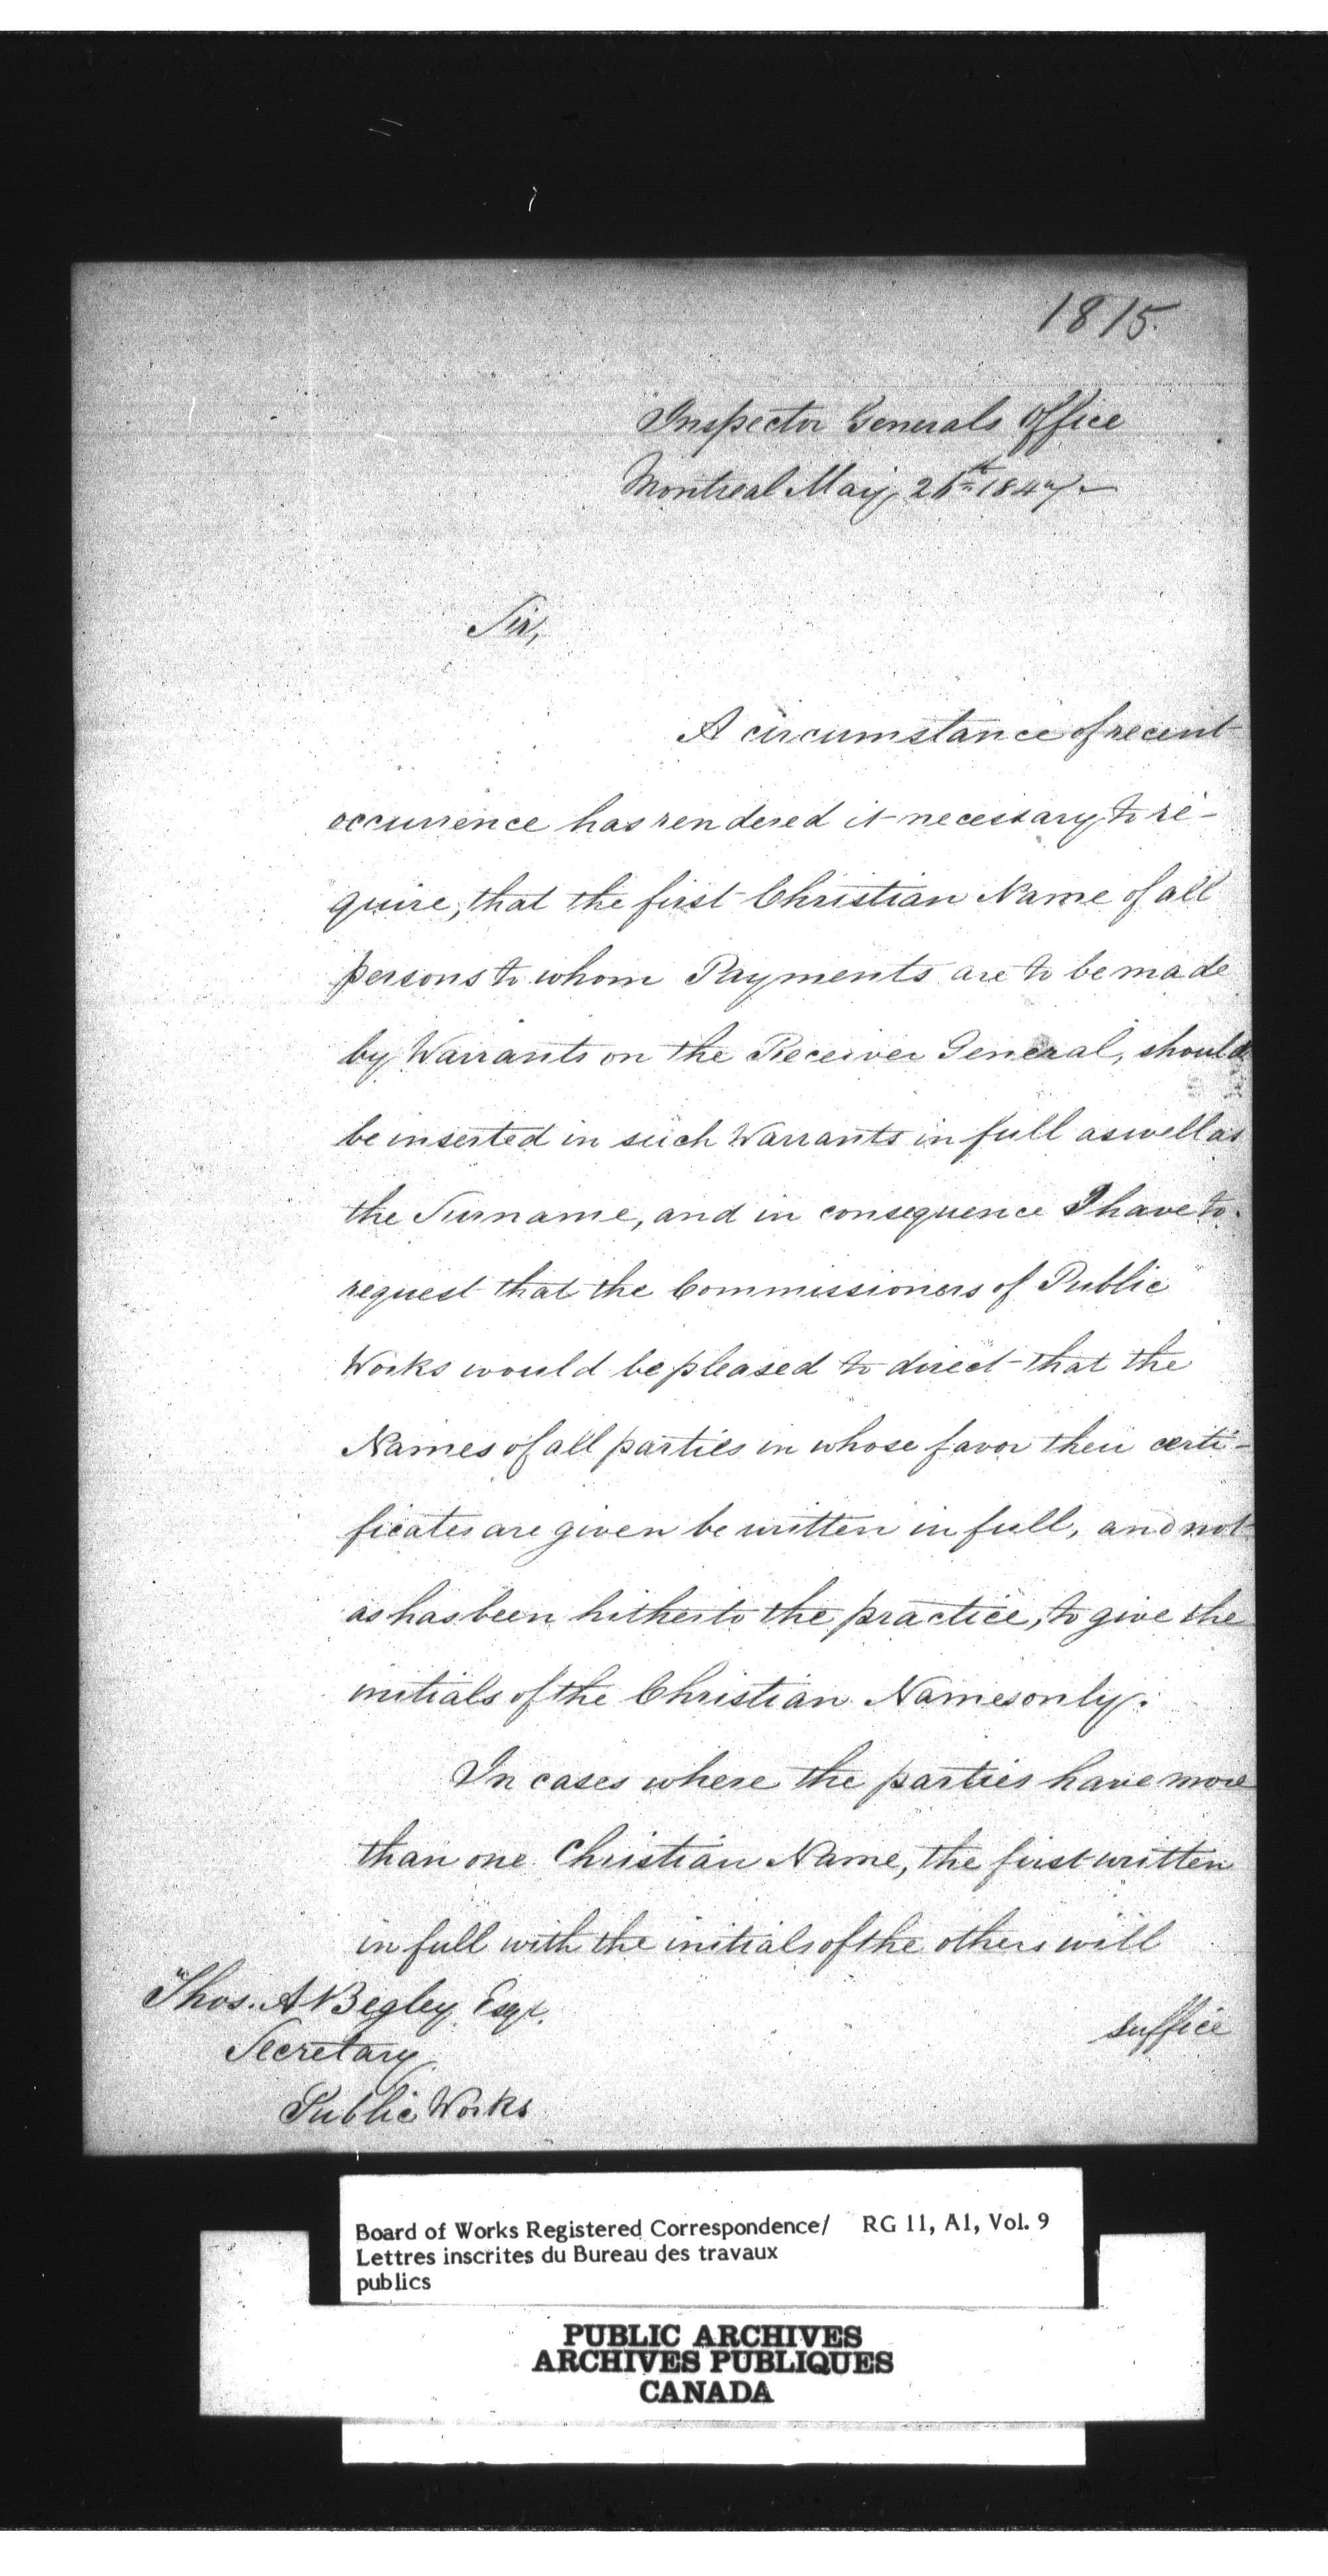 1815.
Inspector Generals Office
Montreal May 26th 1847.
Sir,
A circumstance of recent
occurrence has rendered it necessary to re-
quire, that the first Christian Name of all
persons to whom Payments are to be made
by Warrants on the Receiver General, should
be inserted in such Warrants in full as well as
the Surname, and in consequence I have to
request that the Commissioners of Public
Works would be pleased to direct that the
Names of all parties in whose favor their certi-
ficates are given be written in full, and not
as has been hitherto the practice, to give the
initials of the Christian Names only.
In cases where the parties have more
than one Christian Name, the first written
in full with the initials of the others will
suffice
Thos. A Begley Esqr.
Secretary
Public Works
Board of Works Registered Correspondence/ RG 11, A1, Vol. 9
Lettres inscrites du Bureau des travaux
publics
PUBLIC ARCHIVES
ARCHIVES PUBLIQUES
CANADA